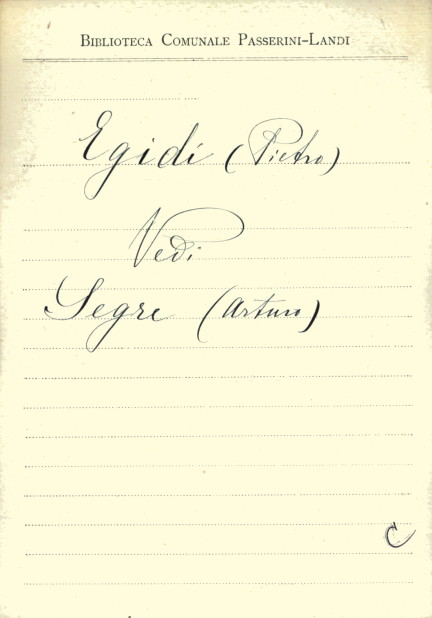 BIBLIOTECA COMUNALE PASSERINI-LANDI
Egidi (Pietro)
Vedi
Segre (Arturo)
C